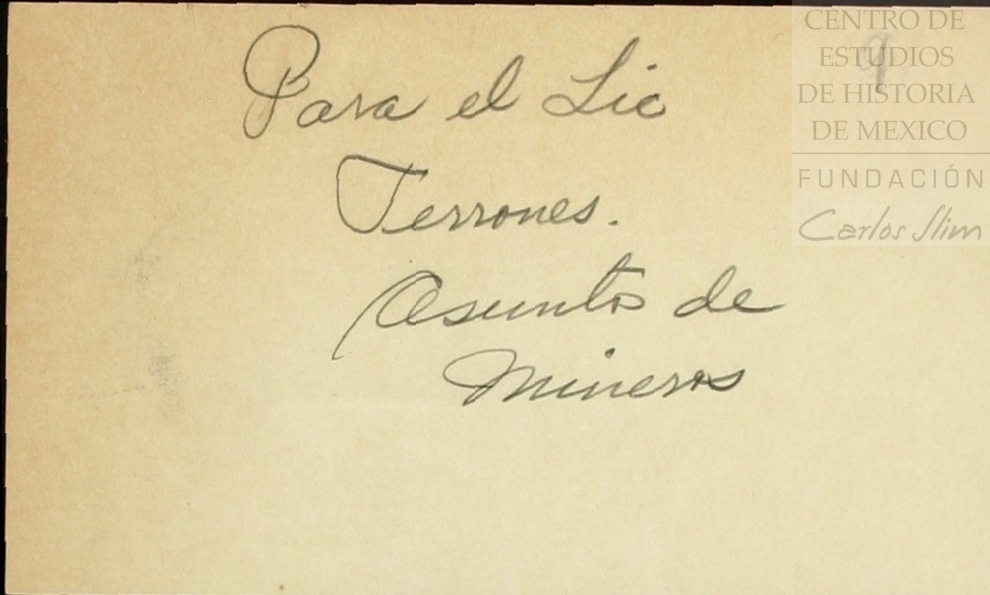 Para el Lic
Terrones.
Asuntos de
Mineros
9
CENTRO DE
ESTUDIOS
DE HISTORIA
DE MEXICO
FUNDACIÓN
Carlos Slim